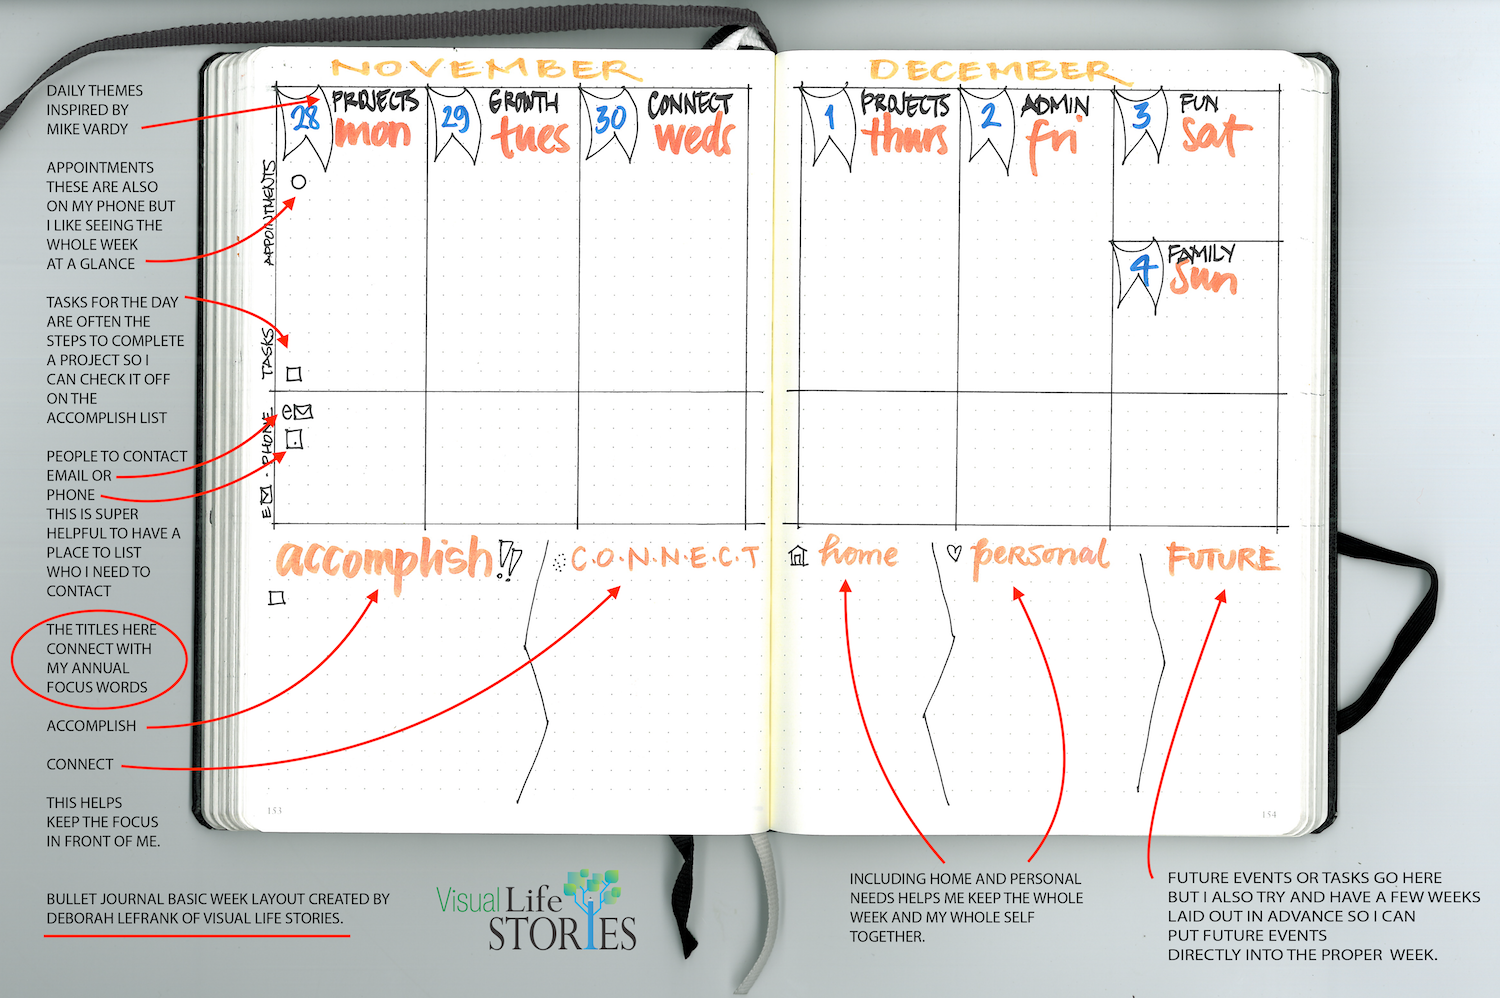 DAILY THEMES
INSPIRED BY
MIKE VARDY
APPOINTMENTS
THESE ARE ALSO
ON MY PHONE BUT
I LIKE SEEING THE
WHOLE WEEK
AT A GLANCE
TASKS FOR THE DAY
ARE OFTEN THE
STEPS TO COMPLETE
A PROJECT SO I
CAN CHECK IT OFF
ON THE
ACCOMPLISH LIST
PEOPLE TO CONTACT
EMAIL OR
PHONE
THIS IS SUPER
HELPFUL TO HAVE A
PLACE TO LIST
WHO I NEED TO
CONTACT
THE TITLES HERE
CONNECT WITH
MY ANNUAL
FOCUS WORDS
ACCOMPLISH
CONNECT
THIS HELPS
KEEP THE FOCUS
IN FRONT OF ME.
BULLET JOURNAL BASIC WEEK LAYOUT CREATED BY
DEBORAH LEFRANK OF VISUAL LIFE STORIES.
NOVEMBER
28 PROJECTS
mon
29 GROWTH
tues
30 CONNECT
weds
APPOINTMENTS
TASKS
E - PHONE
e
accomplish!!
C.O.N.N.E.C.T
153
DECEMBER
1 PROJECTS
thurs
2 ADMIN
fri
3 FUN
sat
4 FAMILY
sun
home
personal
FUTURE
154
Visual Life
STORIES
INCLUDING HOME AND PERSONAL
NEEDS HELPS ME KEEP THE WHOLE
WEEK AND MY WHOLE SELF
TOGETHER.
FUTURE EVENTS OR TASKS GO HERE
BUT I ALSO TRY AND HAVE A FEW WEEKS
LAID OUT IN ADVANCE SO I CAN
PUT FUTURE EVENTS
DIRECTLY INTO THE PROPER WEEK.